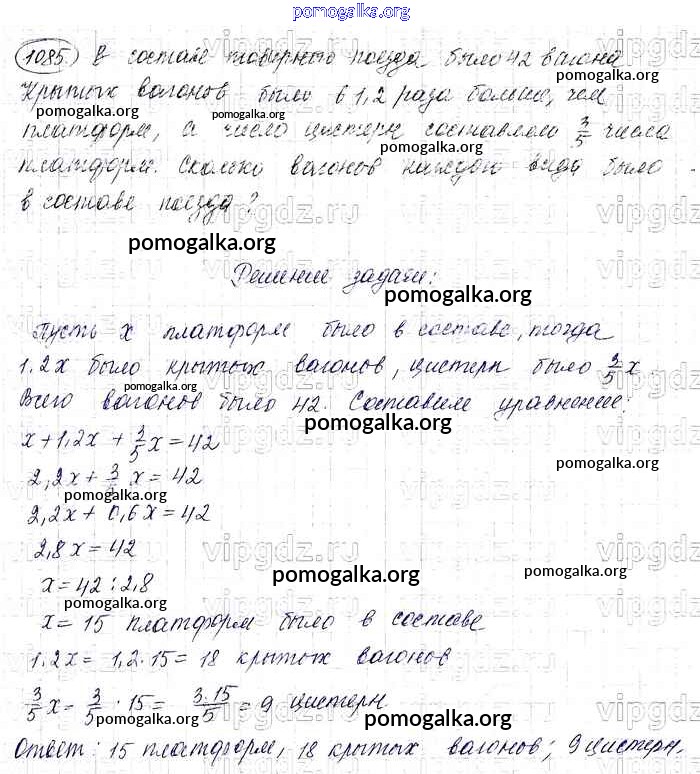 pomogalka.org
1085. В составе товарного поезда было 42 вагона
Крытых вагонов было в 1,2 раза больше, чем
платформ, а число цистерн составляло 3/5 числа
платформ. Сколько вагонов каждого вида было
в составе поезда?
pomogalka.org
Решение задачи:
pomogalka.org
Пусть x платформ было в составе, тогда
1.2x было крытых вагонов, цистерн было 3/5 x
Всего вагонов было 42. Составим уравнение:
pomogalka.org
x+1,2x + 3/5 x = 42
2,2x + 3/5 x = 42
pomogalka.org
2,2x + 0,6x = 42
2.8x = 42
x = 42 : 2,8
pomogalka.org
x = 15 платформ было в составе
1.2x = 1,2·15 = 18 крытых вагонов
3/5 x = 3/5 · 15 = 3·15/5 = 9 цистерн
pomogalka.org
Ответ: 15 платформ, 18 крытых вагонов; 9 цистерн.
vipgdz.ru